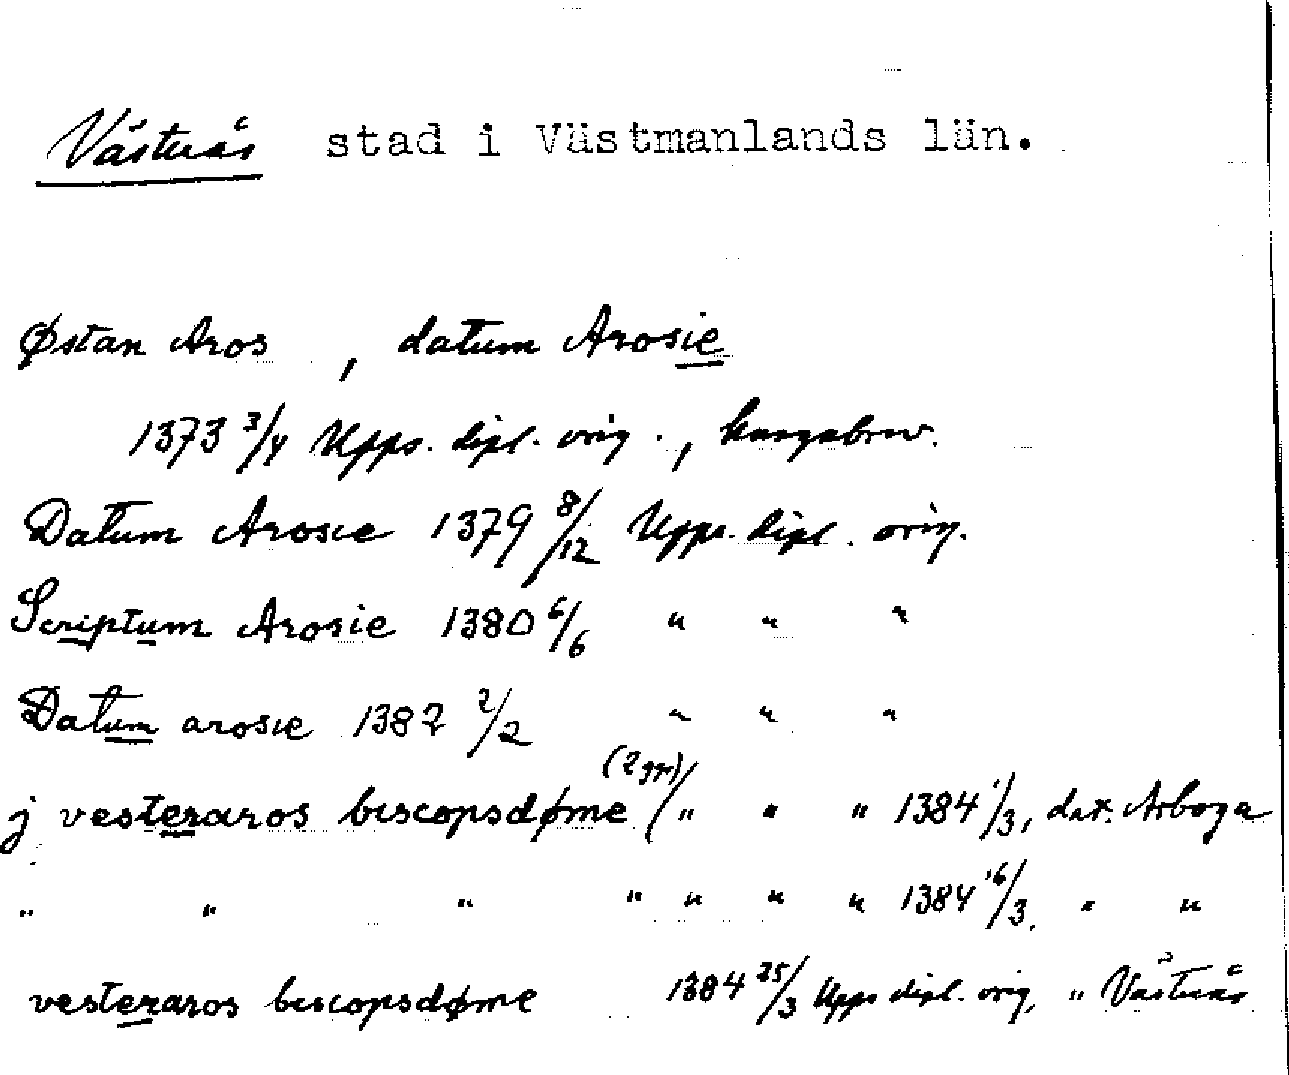 Västerås stad i Västmanlands län.
Østan Aros , datum Arosie
1373 3/4 Upps. dipl. orig., kungabrev.
Datum Arosie 1379 8/12 Upps. dipl. orig.
Scriptum Arosie 1380 6/6 " " "
Datum arosie 1382 2/2 " " "
(2 ggr)
j vesteraros biscopsdøme ( " " " 1384 1/3, dat. Arboga
" " " " " " " 1384 16/3. " "
vesteraros biscopsdøme 1384 25/3 Upps dipl. orig, " Västerås